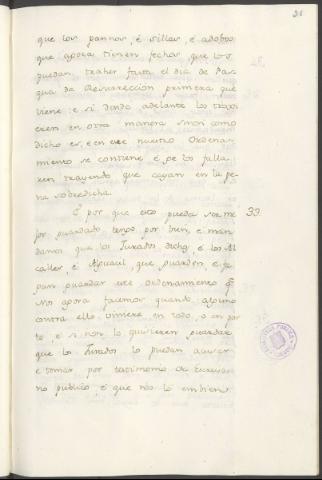 21
que los pannos, é sillas, é adobos
que agora tienen fechos, que los
puedan traher fasta el dia de Pas
qua de Resurrección primera que
viene; e si dende adelante los troxi
eren en otra manera sinon como
dicho es, e en este nuestro Ordenan
miento se contiene, é ge los falla
ren trayendo que cayan en la pe
na sobredicha.
E por que esto pueda ser me 33
jor guardado, tenos por bien, e man
damos que los Jurados dichos, é los Al
calles, é Alguacil, que guarden, é fa
gan guardar este ordenamiento q.e
Nos agora facemos quando alguno
contra ello viniere en todo, o en par
te, e si non lo quisieren guardar
que los Jurados lo puedan acusar
e tomar por testimonio de Escriva
no publico, é que nos lo embien